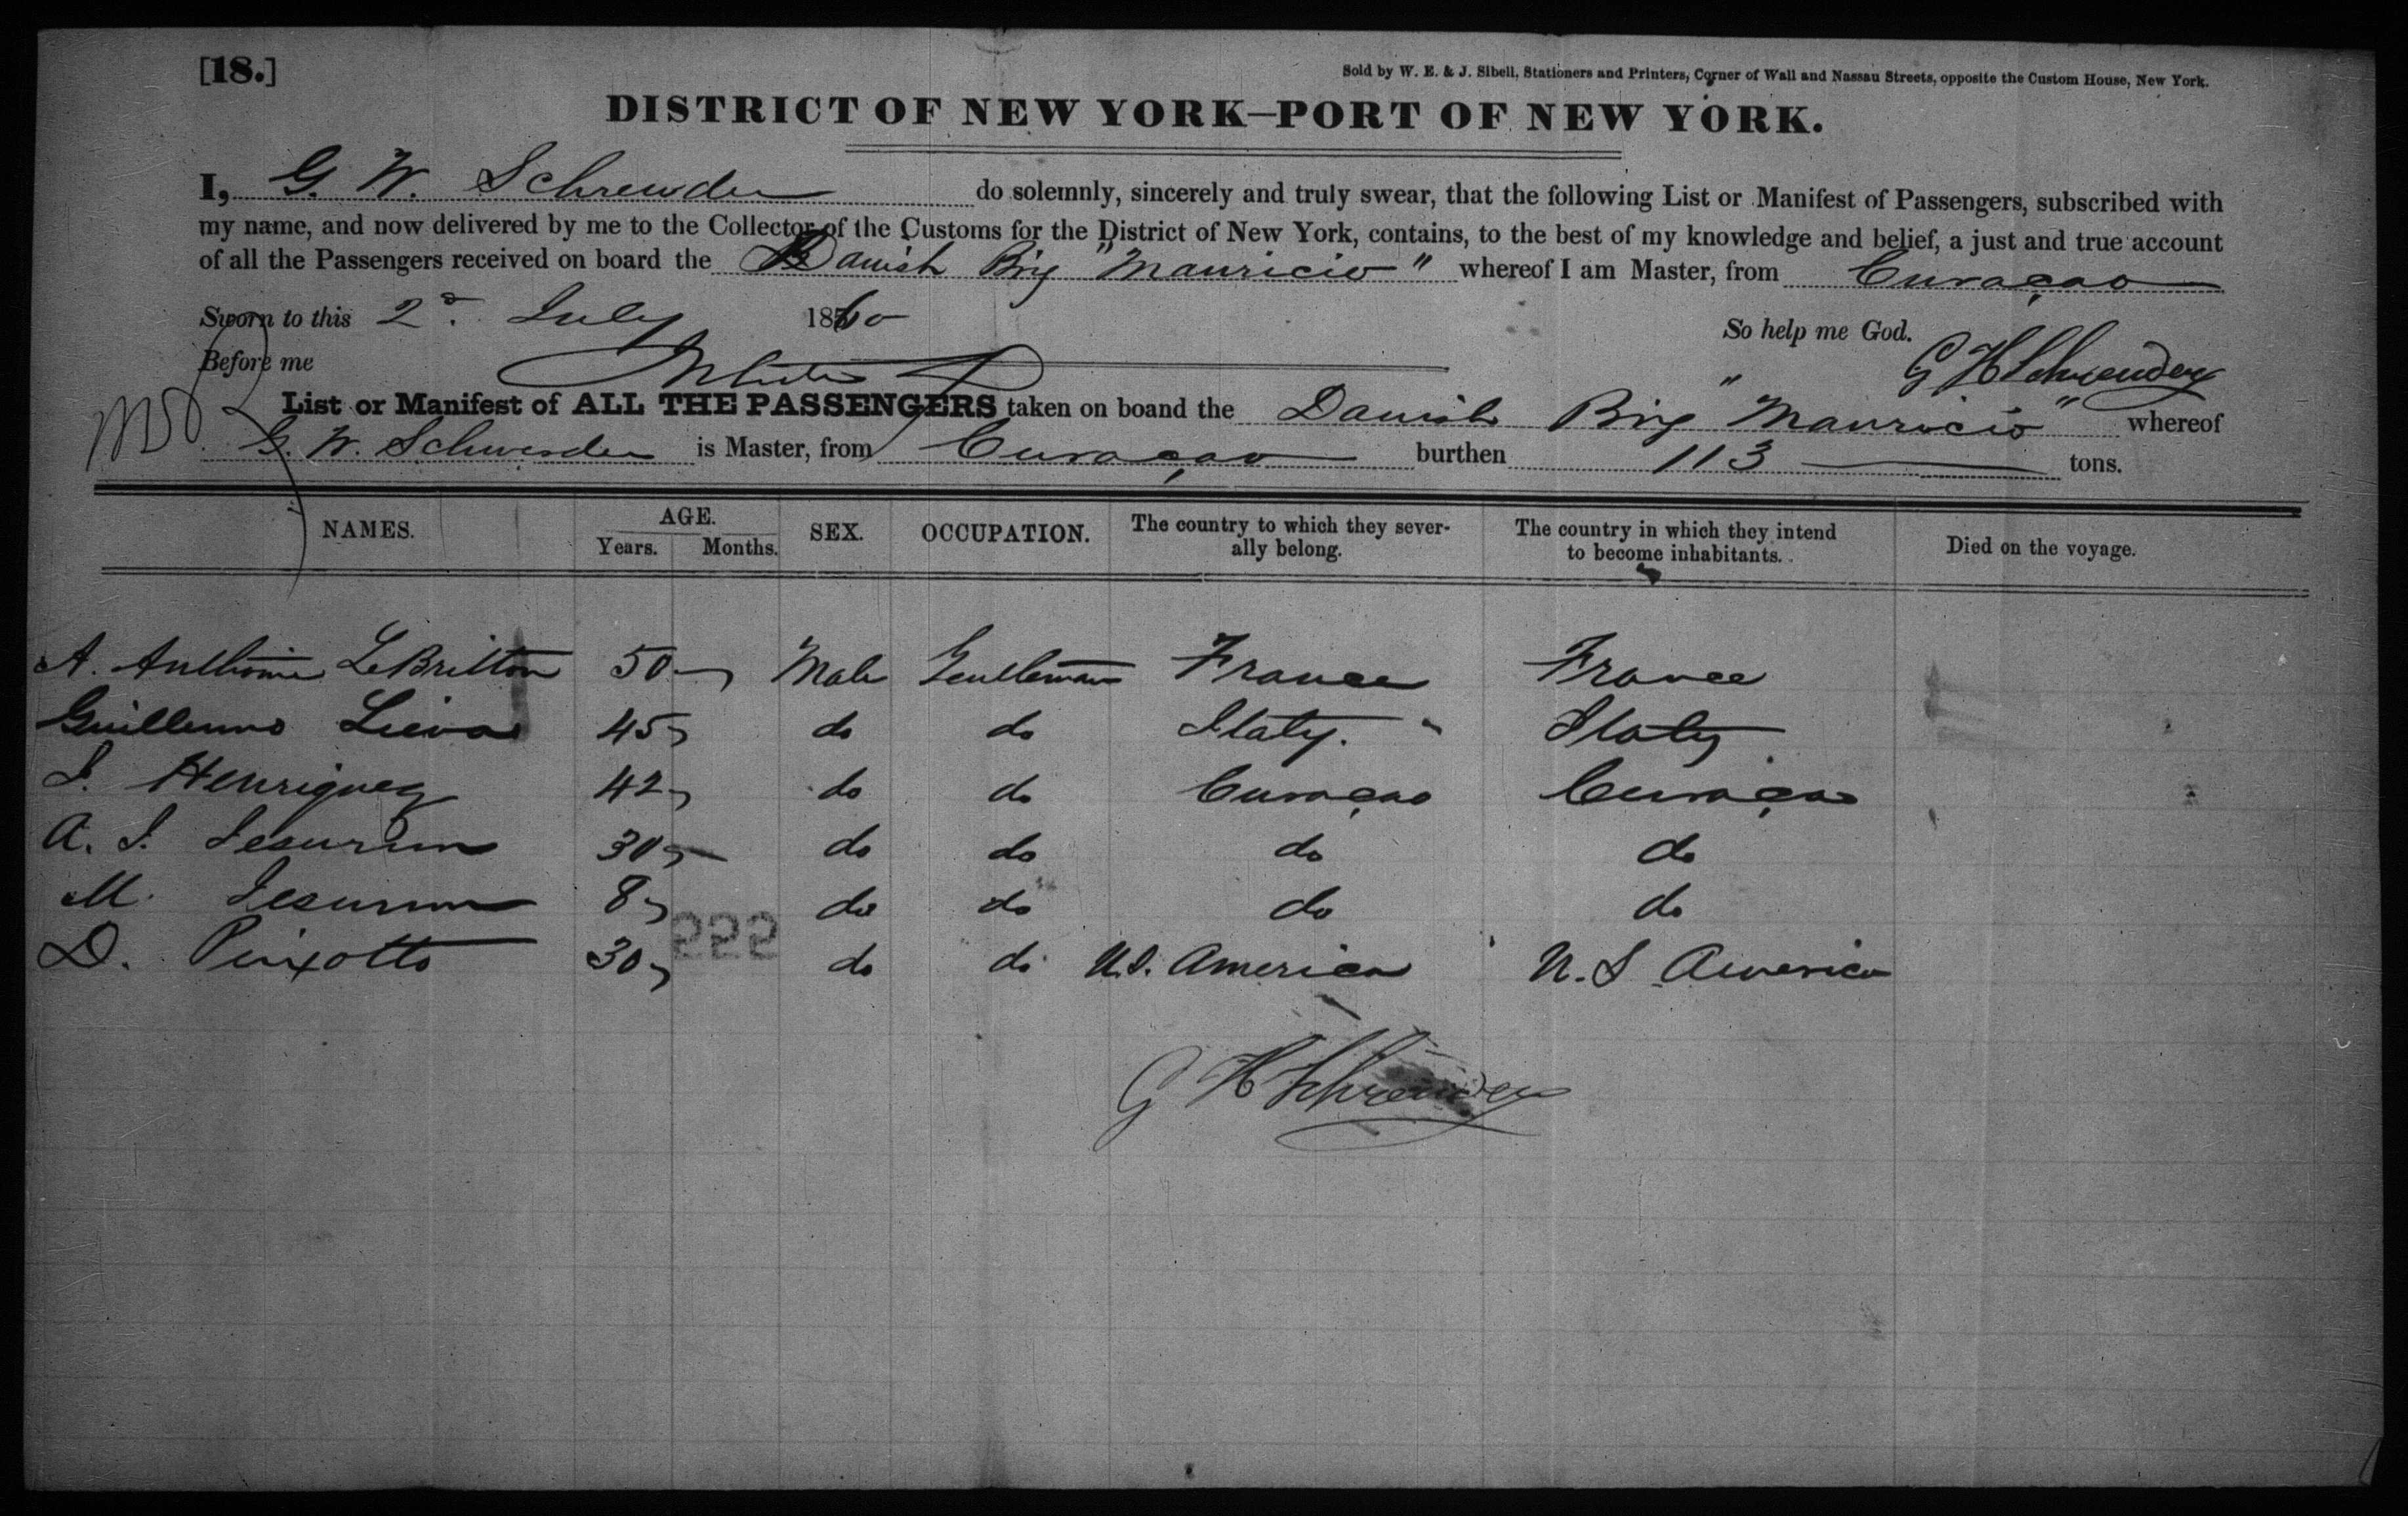 [18.]
Sold by W. E. & J. Sibell, Stationers and Printers, Corner of Wall and Nassau Streets, opposite the Custom House, New York.
DISTRICT OF NEW YORK—PORT OF NEW YORK.
I, G. W. Schrewder do solemnly, sincerely and truly swear, that the following List or Manifest of Passengers, subscribed with
my name, and now delivered by me to the Collector of the Customs for the District of New York, contains, to the best of my knowledge and belief, a just and true account
of all the Passengers received on board the Danish Brig "Mauricio" whereof I am Master, from Curaçao
Sworn to this 2d July 1860 So help me God.
Before me
List or Manifest of ALL THE PASSENGERS taken on boand the Danish Brig "Mauricio" whereof
G. W. is Master, from Curaçao burthen 113 tons.
NAMES. AGE. Years. Months. SEX. OCCUPATION. The country to which they severally belong. The country in which they intend to become inhabitants. Died on the voyage.
A. LeBritton 50 Male Gentleman France France
Guillermo 45 do do Italy. Italy
Henriquez 42 do do Curaçao Curaçao
A. J. Jesurun 30 do do do do
M. Jesurun 8 do do do do
D. Peixotto 30 do do U.S. America U.S America